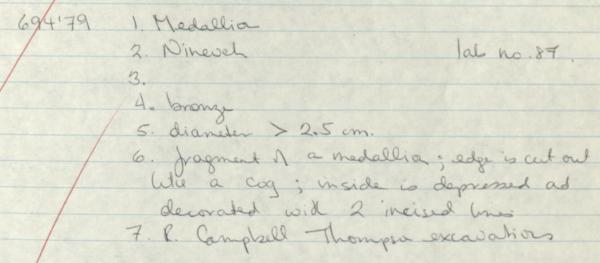 694'79 1. Medallion
2. Nineveh lab no. 87.
3.
4. bronze
5. diameter > 2.5 cm.
6. fragment of a medallion; edge is cut out
like a cog; inside is depressed and
decorated with 2 incised lines
7. R. Campbell Thompson excavations